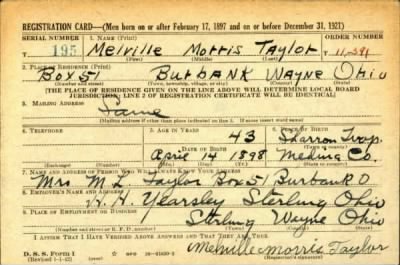 REGISTRATION CARD—(Men born on or after February 17, 1897 and on or before December 31, 1921)
SERIAL NUMBER 1. NAME (Print) ORDER NUMBER
195 Melville Morris Taylor T 11,291
(First) (Middle) (Last)
2. PLACE OF RESIDENCE (Print)
Box 51 Burbank Wayne Ohio
(Number and street) (Town, township, village, or city) (County) (State)
[THE PLACE OF RESIDENCE GIVEN ON THE LINE ABOVE WILL DETERMINE LOCAL BOARD
JURISDICTION; LINE 2 OF REGISTRATION CERTIFICATE WILL BE IDENTICAL]
3. MAILING ADDRESS
Same
[Mailing address if other than place indicated on line 2. If same insert word same]
4. TELEPHONE 5. AGE IN YEARS 6. PLACE OF BIRTH
43 Sharron Twp.
DATE OF BIRTH (Town or county)
April 14 1898 Medina Co.
(Exchange) (Number) (Mo.) (Day) (Yr.) (State or country)
7. NAME AND ADDRESS OF PERSON WHO WILL ALWAYS KNOW YOUR ADDRESS
Mrs M. L. Taylor Box 51 Burbank O
8. EMPLOYER'S NAME AND ADDRESS
H. H. Yearsley Sterling Ohio
9. PLACE OF EMPLOYMENT OR BUSINESS
Sterling Wayne Ohio
(Number and street or R. F. D. number) (Town) (County) (State)
I AFFIRM THAT I HAVE VERIFIED ABOVE ANSWERS AND THAT THEY ARE TRUE.
Melville Morris Taylor
D. S. S. Form 1
(Revised 1-1-42) (over)